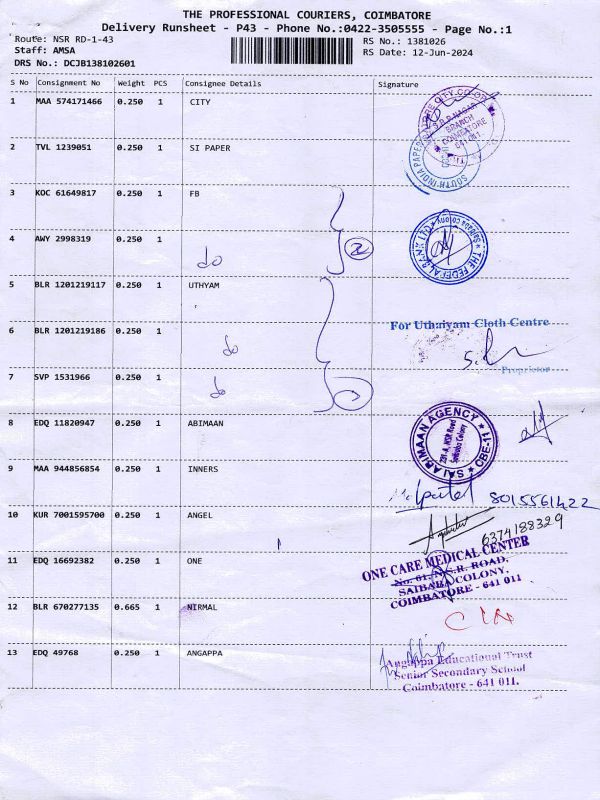 THE PROFESSIONAL COURIERS, COIMBATORE
Delivery Runsheet - P43 - Phone No.:0422-3505555 - Page No.:1
Route: NSR RD-1-43
RS No.: 1381026
Staff: AMSA
RS Date: 12-Jun-2024
DRS No.: DCJB138102601
S No Consignment No Weight PCS Consignee Details Signature
1 MAA 574171466 0.250 1 CITY
BRANCH
COIMBATORE
641 011
2 TVL 1239051 0.250 1 SI PAPER
SOUTH INDIA PAPER
3 KOC 61649817 0.250 1 FB
4 AWY 2998319 0.250 1 do 2
THE FEDERAL BANK LTD Saibaba colony
5 BLR 1201219117 0.250 1 UTHYAM
For Uthaiyam Cloth Centre
6 BLR 1201219186 0.250 1 do
Proprietor
7 SVP 1531966 0.250 1 do
8 EDQ 11820947 0.250 1 ABIMAAN
SAI ABIMAAN AGENCY CBE-11
231-A, NSR Road
Saibaba Colony
9 MAA 944856854 0.250 1 INNERS
8015561422
10 KUR 7001595700 0.250 1 ANGEL
6374188329
11 EDQ 16692382 0.250 1 ONE
ONE CARE MEDICAL CENTER
No. 61, N.S.R. ROAD,
SAIBABA COLONY,
COIMBATORE - 641 011
12 BLR 670277135 0.665 1 NIRMAL
13 EDQ 49768 0.250 1 ANGAPPA
Angappa Educational Trust
Senior Secondary School
Coimbatore - 641 011.